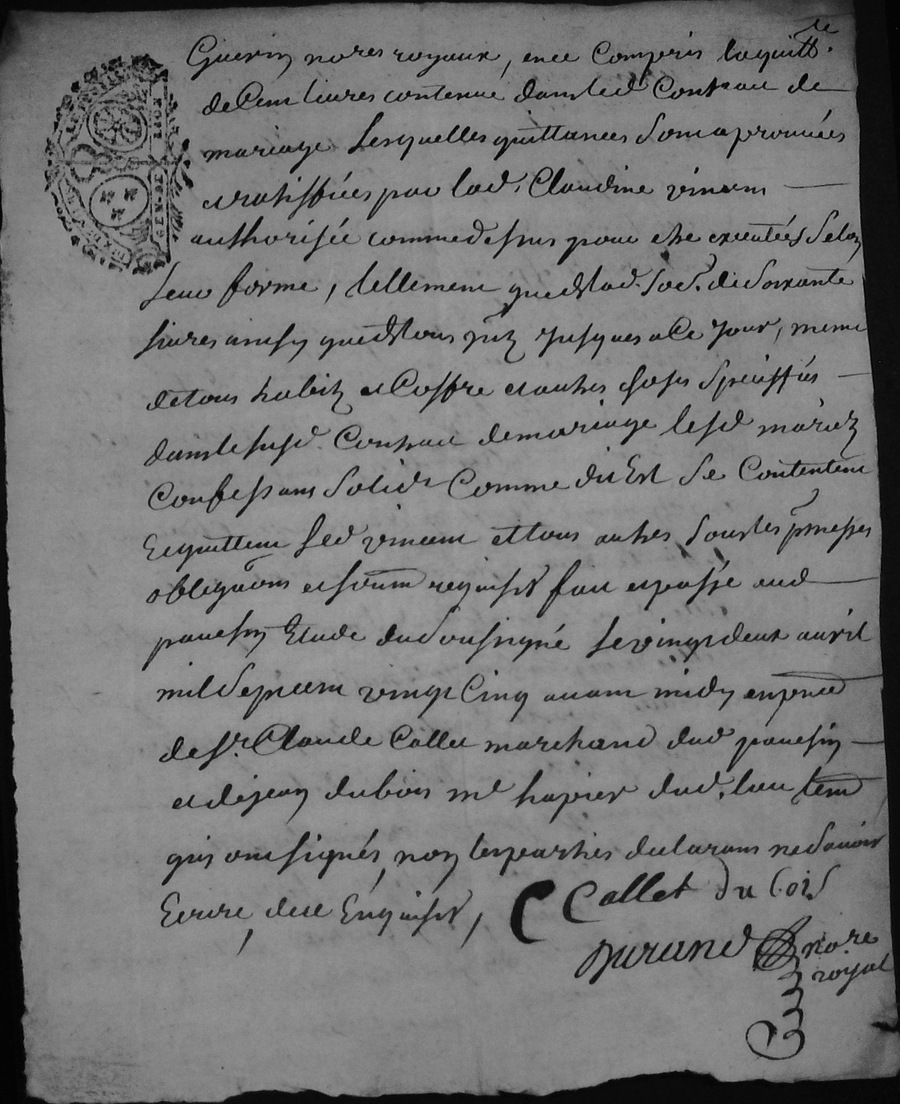 Guerin no.res royaux, en ce Compris la quitt.ce
de Cent livres contenue dans led. Contract de
mariage Lesquelles quittances Sont aprouvées
et ratiffiées par lad. Claudine vincent
authorisée comme dessus pour etre executées Selon
Leur forme, tellement que de lad. So.e de Soixante
livres
Jusques a Ce Jour, meme
de tous habits et Coffre et autres choses Speciffiés
dans le susd. Contract de mariage lesd. mariez
Confessans Solid.t Comme dit Est Se Contentent
Et quittent led. vincent et tous autres Sous les p.messes
obligãons et serem requises fait et passé aud.
pouchin Etude du Sousigné Le vingt deux avril
mil Sept cent vingt Cinq avant midy en p.nce
de S.r Claude Collet marchand dud.
et de jean dubois m.e dud. lieu tem.
qui ont signés, non les parties declarans ne Savoir
Ecrire, de ce Enquises,
C Collet Du bois
Durand no.re
royal